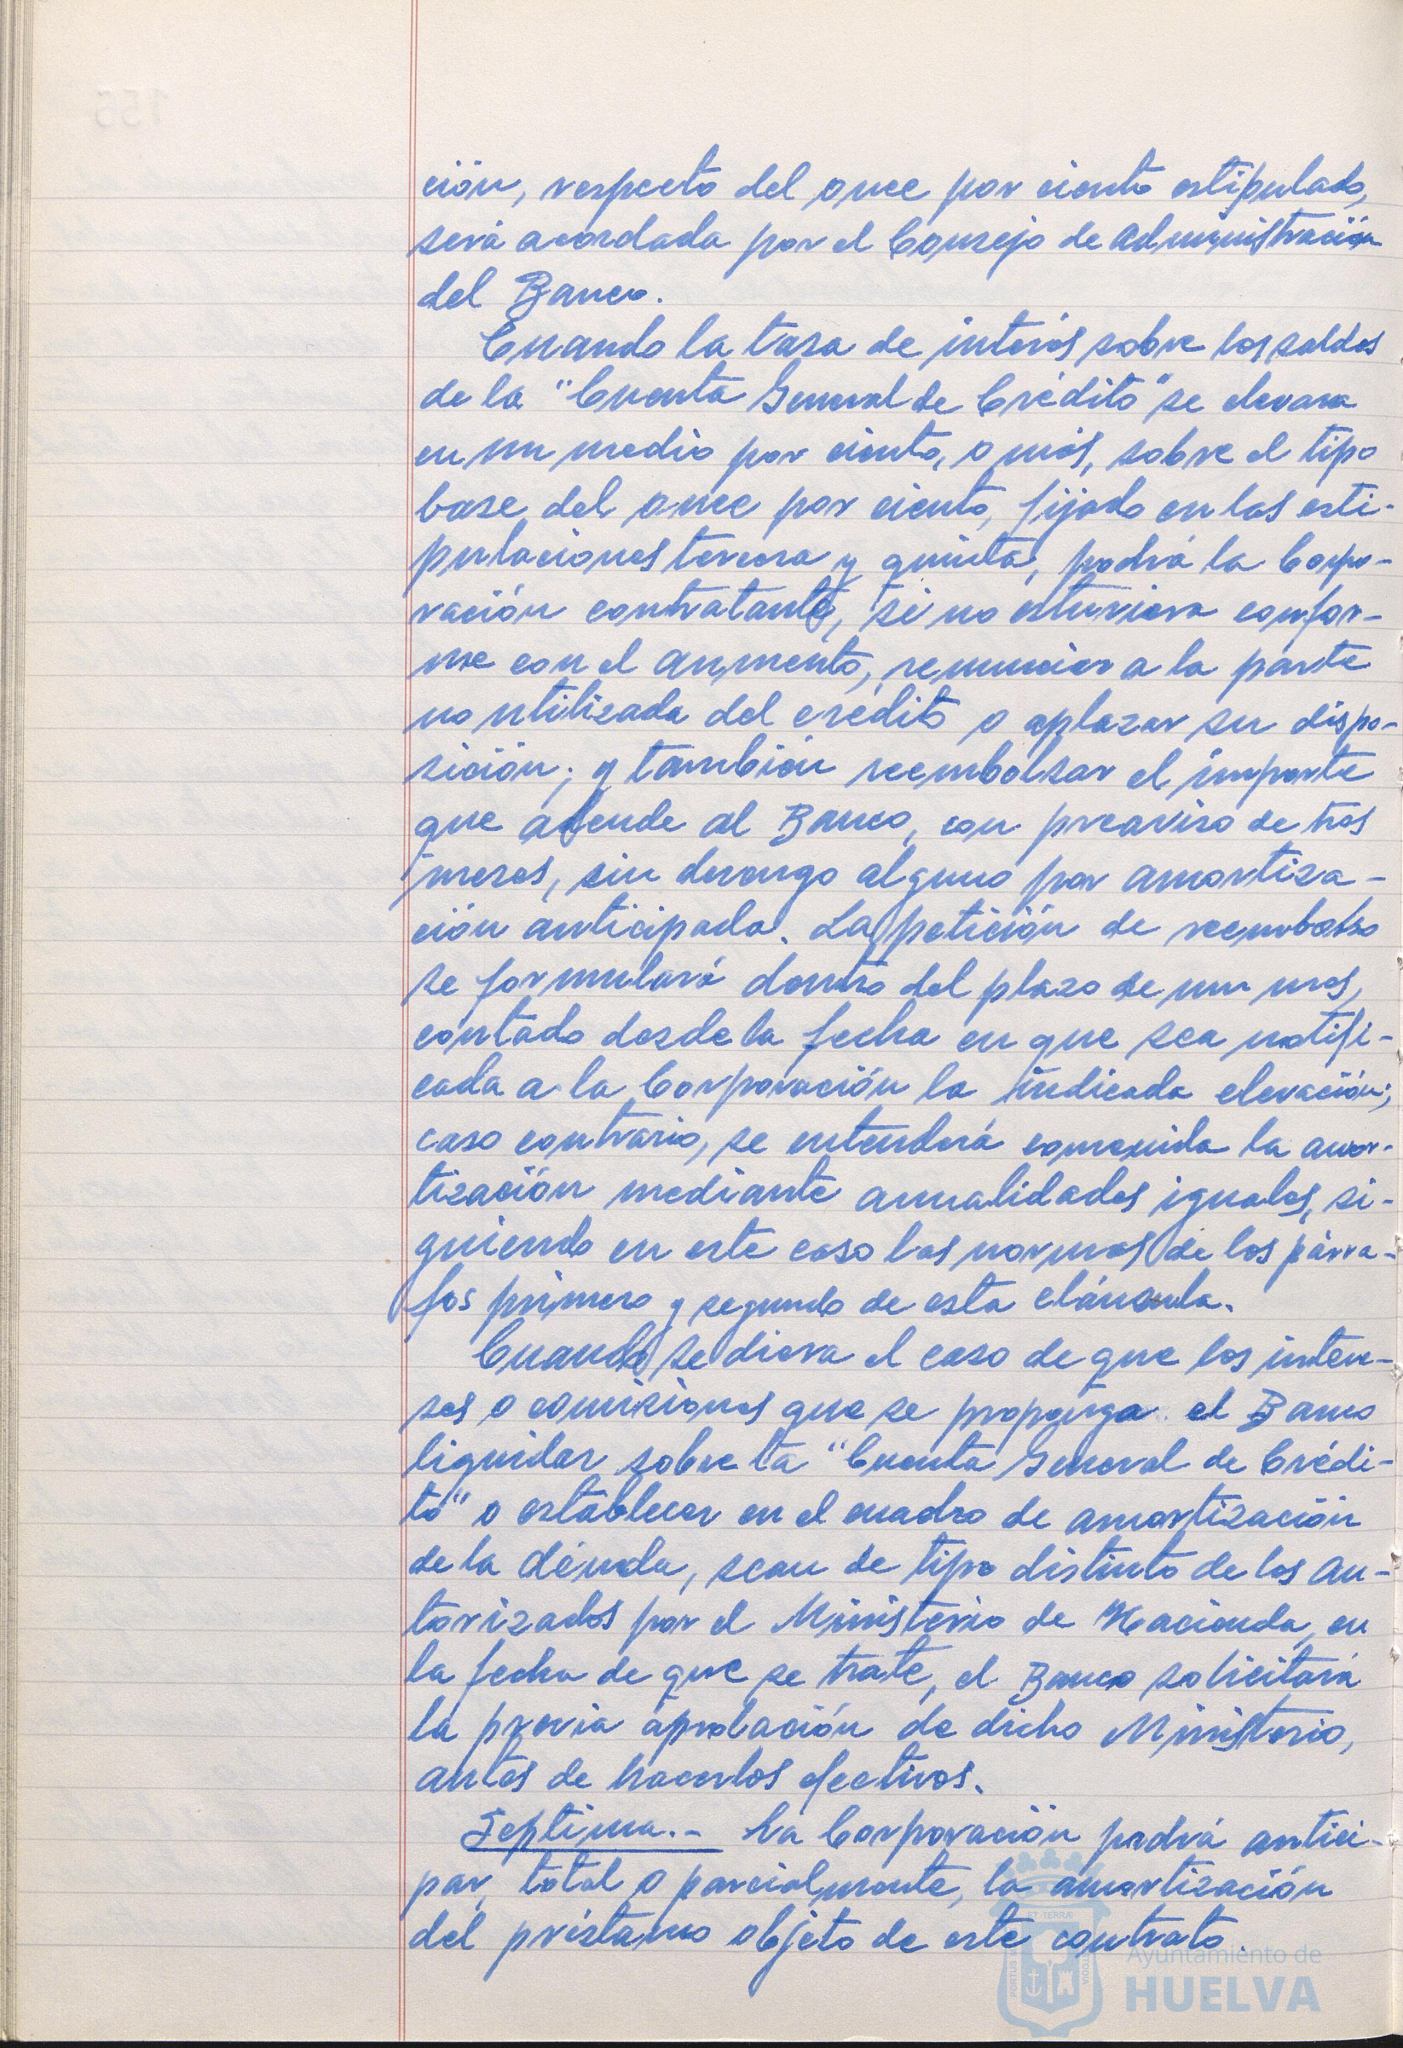 ción, respecto del once por ciento estipulado,
será acordada por el Consejo de Administración
del Banco.
Cuando la tasa de interés sobre los saldos
de la "Cuenta General de Crédito" se elevara
en un medio por ciento, o más, sobre el tipo
base del once por ciento, fijado en las esti-
pulaciones tercera y quinta, podrá la Corpo-
ración contratante, si no estuviera confor-
me con el aumento, renunciar a la parte
no utilizada del crédito o aplazar su dispo-
sición; y también reembolsar el importe
que adeude al Banco, con preaviso de tres
meses, sin devengo alguno por amortiza-
ción anticipada. La petición de reembolso
se formulará dentro del plazo de un mes,
contado desde la fecha en que sea notifi-
cada a la Corporación la indicada elevación;
caso contrario, se entenderá convenida la amor-
tización mediante anualidades iguales, si-
guiendo en este caso las normas de los párra-
fos primero y segundo de esta cláusula.
Cuando se diera el caso de que los intere-
ses o comisiones que se proponga el Banco
liquidar sobre la "Cuenta General de Crédi-
to" o establecer en el cuadro de amortización
de la deuda, sean de tipo distinto de los au-
torizados por el Ministerio de Hacienda, en
la fecha de que se trate, el Banco solicitará
la previa aprobación de dicho Ministerio,
antes de hacerlos efectivos.
Septima.- La Corporación podrá antici-
par, total o parcialmente, la amortización
del préstamo objeto de este contrato.
Ayuntamiento de
HUELVA
156